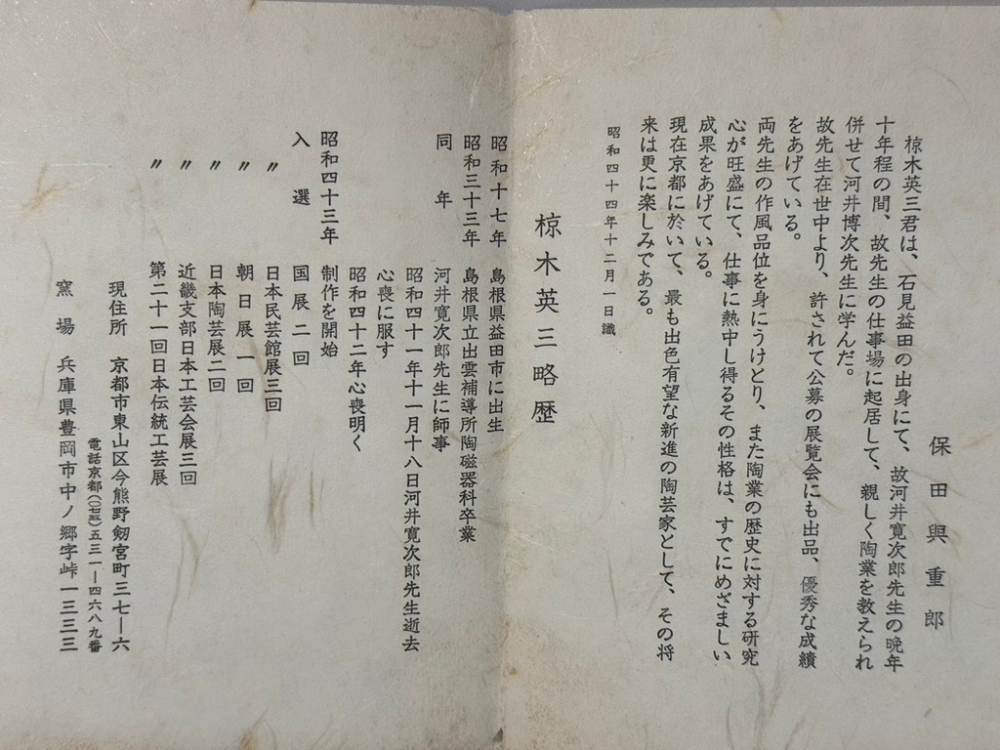 保田與重郎
椋木英三君は、石見益田の出身にて、故河井寛次郎先生の晩年
十年程の間、故先生の仕事場に起居して、親しく陶業を教えられ
併せて河井博次先生に学んだ。
故先生在世中より、許されて公募の展覧会にも出品、優秀な成績
をあげている。
両先生の作風品位を身にうけとり、また陶業の歴史に対する研究
心が旺盛にて、仕事に熱中し得るその性格は、すでにめざましい
成果をあげている。
現在京都に於いて、最も出色有望な新進の陶芸家として、その将
来は更に楽しみである。
昭和四十四年十二月一日識
椋木英三略歴
昭和十七年 島根県益田市に出生
昭和三十三年 島根県立出雲補導所陶磁器科卒業
同年 河井寛次郎先生に師事
昭和四十一年十一月十八日河井寛次郎先生逝去
心喪に服す
昭和四十二年心喪明く
昭和四十三年 制作を開始
入選 国展二回
〃 日本民芸館展三回
〃 朝日展一回
〃 日本陶芸展二回
〃 近畿支部日本工芸会展三回
〃 第二十一回日本伝統工芸展
現住所 京都市東山区今熊野剱宮町三七―六
電話京都(〇七五)五三一―四六八九番
窯場 兵庫県豊岡市中ノ郷字峠一三三三